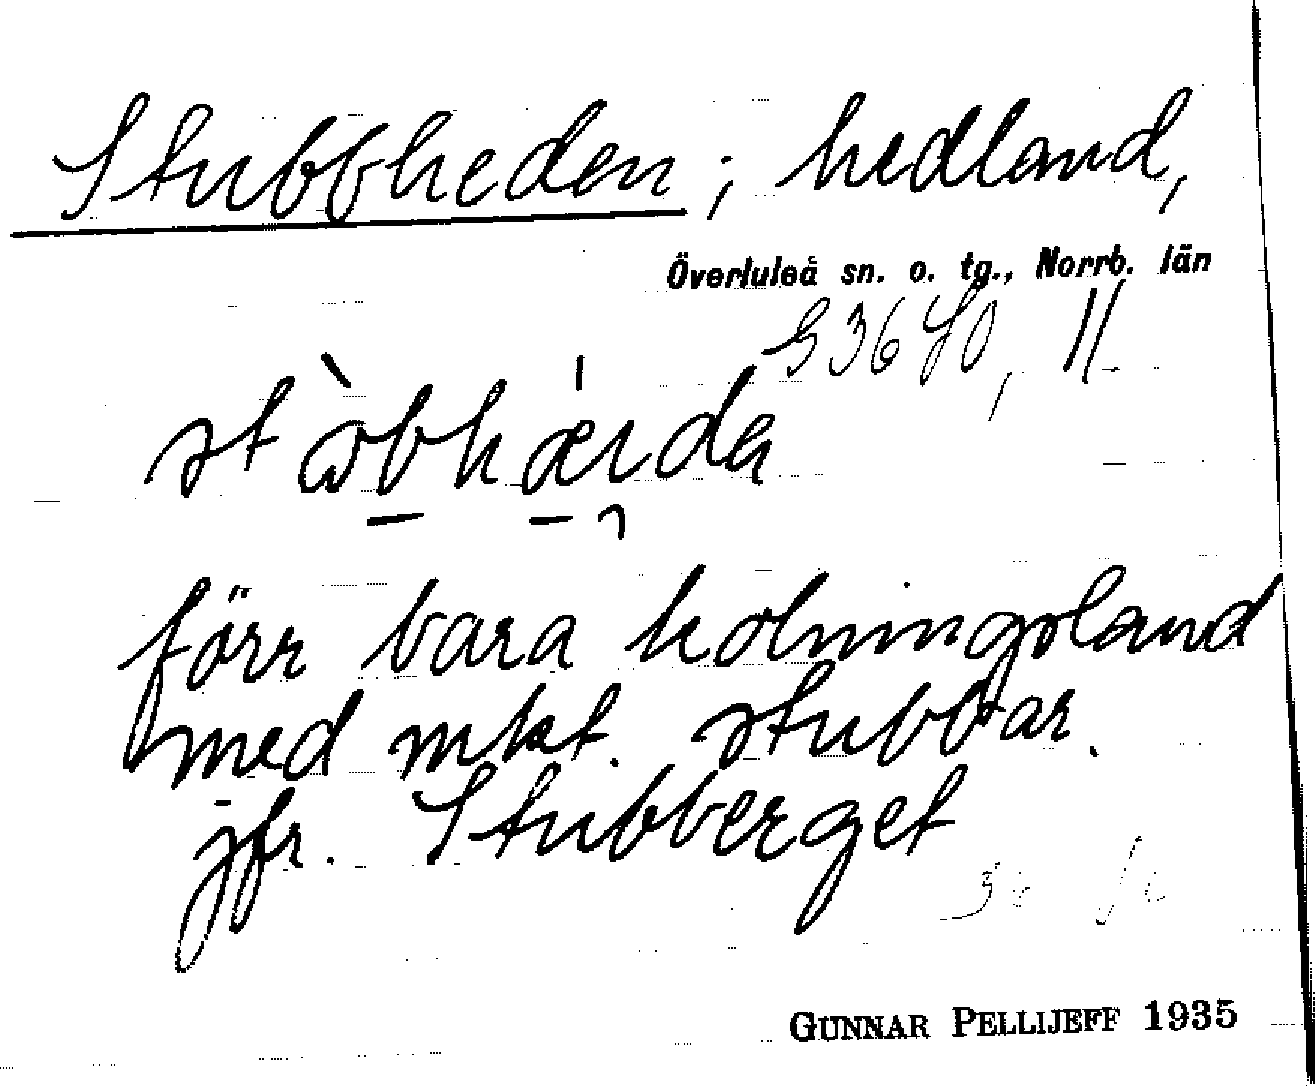 Stubbheden; hedland,
Överluleå sn. o. tg., Norrb. län
förr bara kolningsland
med mkt. stubbar.
jfr. Stubberget
GUNNAR PELLIJEFF 1935